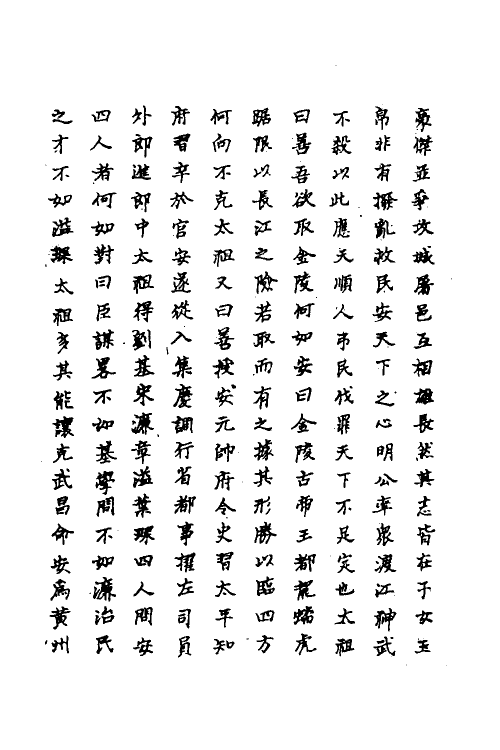 豪傑並爭攻城屠邑互相雄長然其志皆在子女玉
帛非有撥亂救民安天下之心明公率衆渡江神武
不殺以此應天順人弔民伐罪天下不足定也太祖
曰善吾欲取金陵何如安曰金陵古帝王都龍蟠虎
踞限以長江之險若取而有之據其形勝以臨四方
何向不克太祖又曰善授安元帥府令史習太平知
府習卒於官安遂從入集慶調行省都事擢左司員
外郎進郎中太祖得劉基宋濂章溢葉琛四人問安
四人者何如對曰臣謀畧不如基學問不如濂治民
之才不如溢琛太祖多其能讓克武昌命安爲黃州